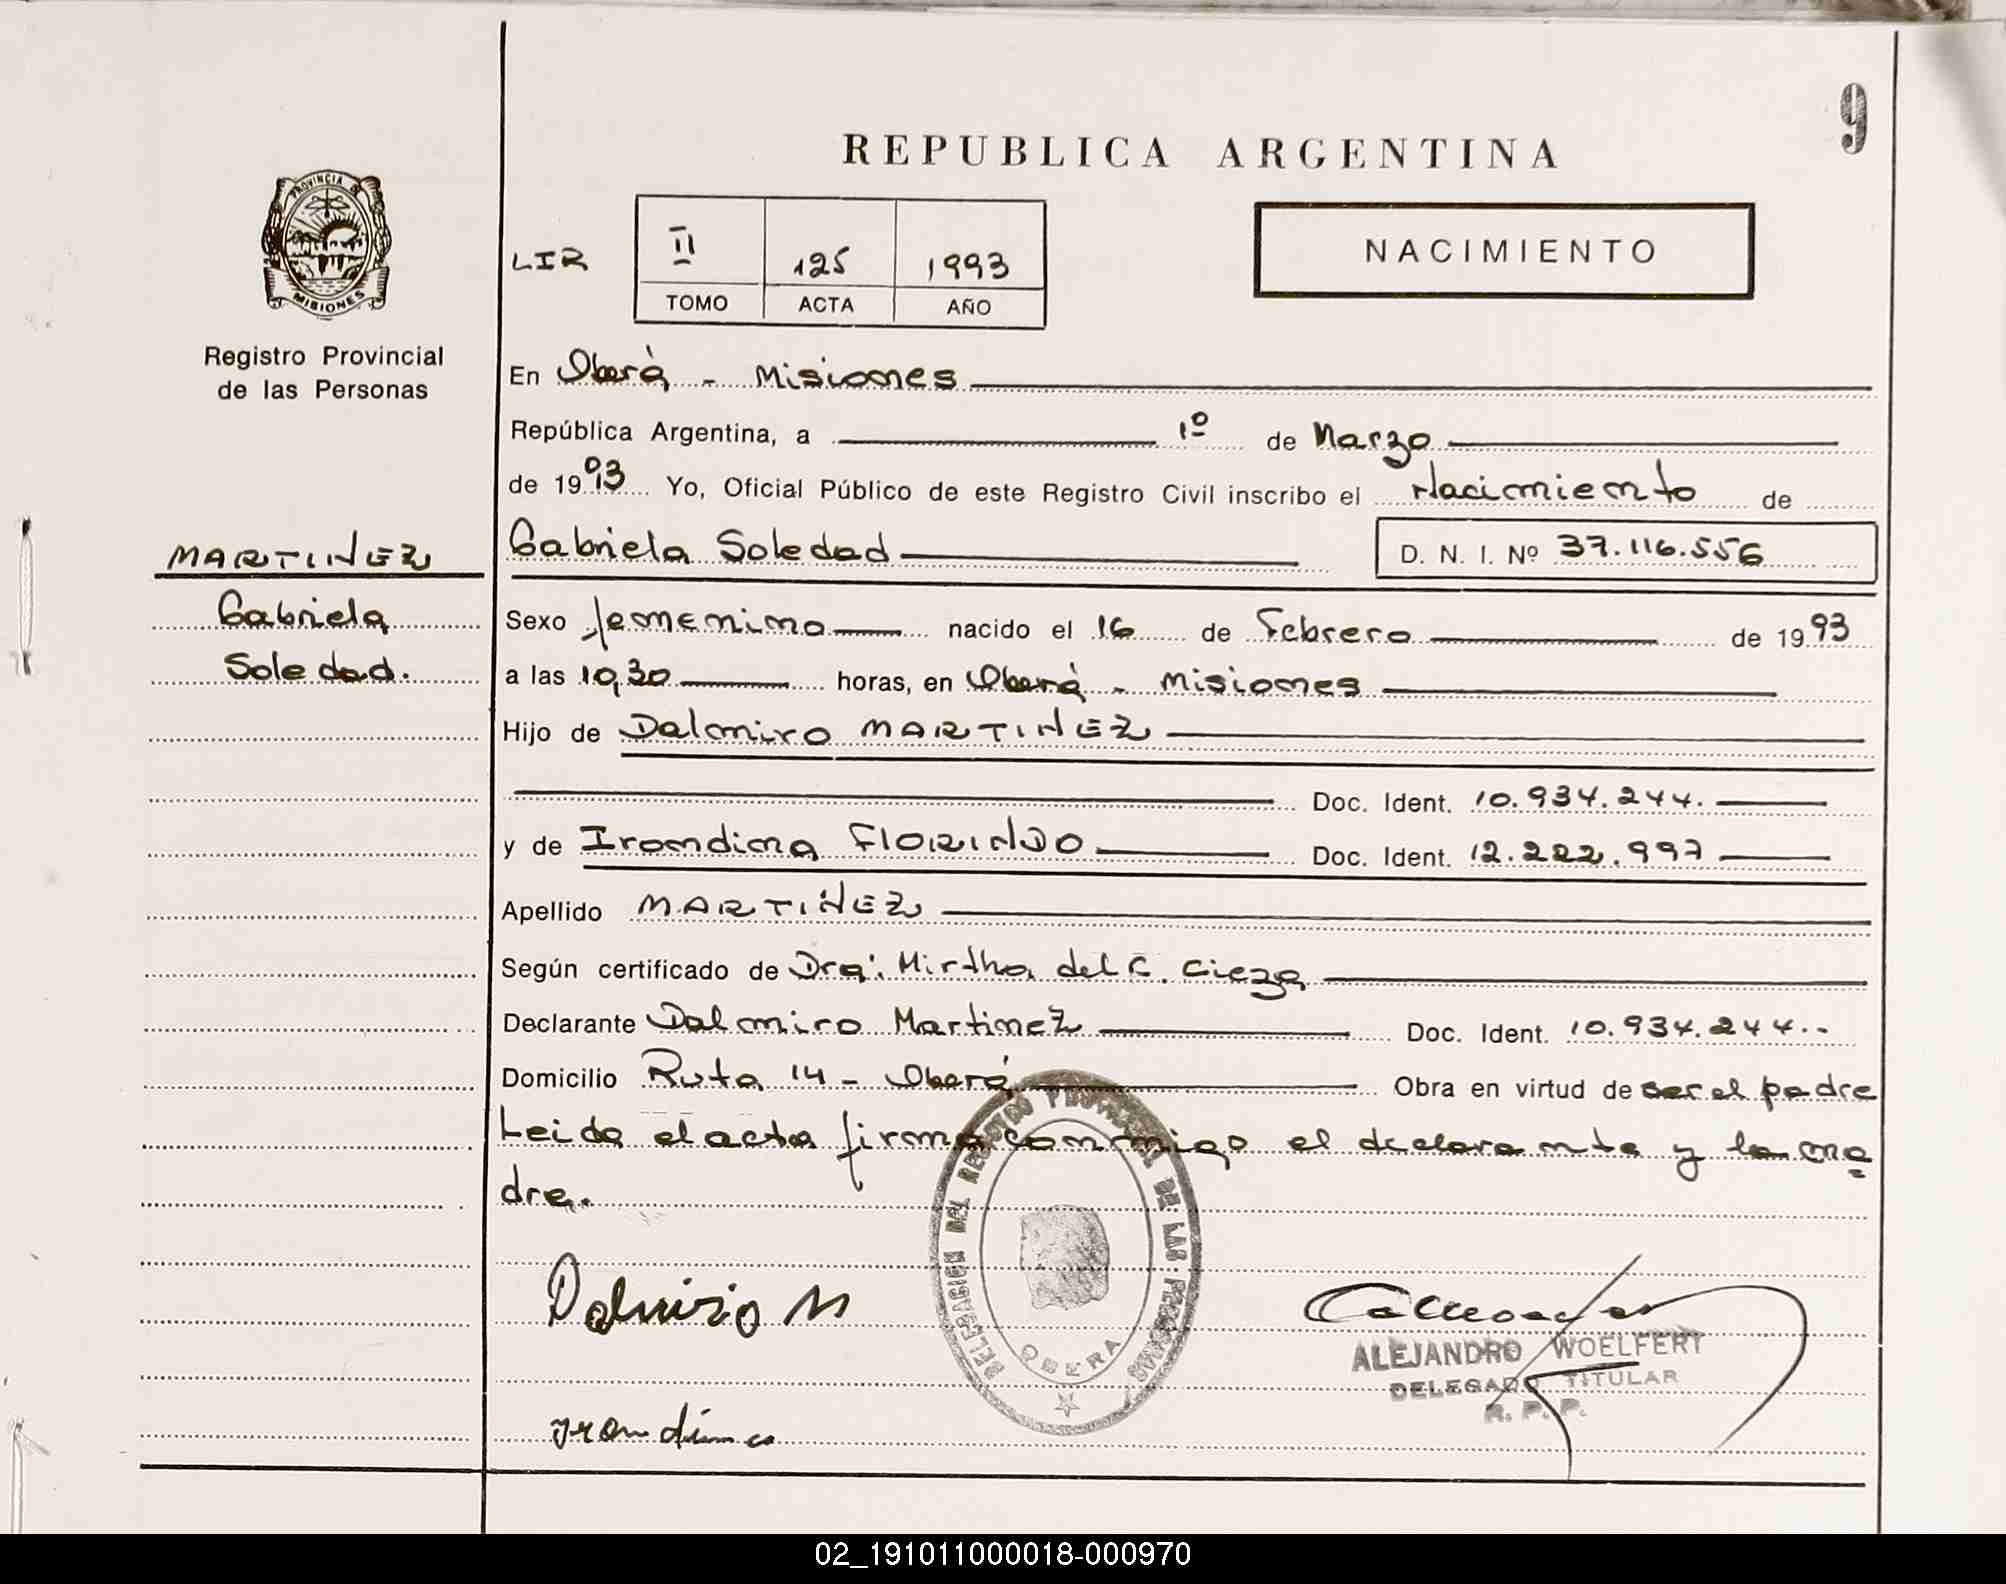 9
REPUBLICA ARGENTINA
PROVINCIA DE
MISIONES
Registro Provincial
de las Personas
LIR
II 125 1993
TOMO ACTA AÑO
NACIMIENTO
En Oberá - Misiones
República Argentina, a 1º de Marzo
de 1993 Yo, Oficial Público de este Registro Civil inscribo el Nacimiento de
MARTINEZ
Gabriela
Soledad.
Gabriela Soledad D. N. I. Nº 37.116.556
Sexo femenino nacido el 16 de Febrero de 1993
a las 10,30 horas, en Oberá - Misiones
Hijo de Dalmiro MARTINEZ
Doc. Ident. 10.934.244.
y de Irondina FLORINDO Doc. Ident. 12.222.997
Apellido MARTINEZ
Según certificado de Dra. Mirtha del C. Cieza
Declarante Dalmiro Martinez Doc. Ident. 10.934.244.-
Domicilio Ruta 14 - Oberá Obra en virtud de ser el padre
Leida el acta firma conmigo el declarante y la ma
dre.
DELEGACION DEL REGISTRO PROVINCIAL DE LAS PERSONAS
OBERA
Dalmiro M
ALEJANDRO WOELFERT
DELEGADO TITULAR
R. P. P.
Irondina
02_191011000018-000970